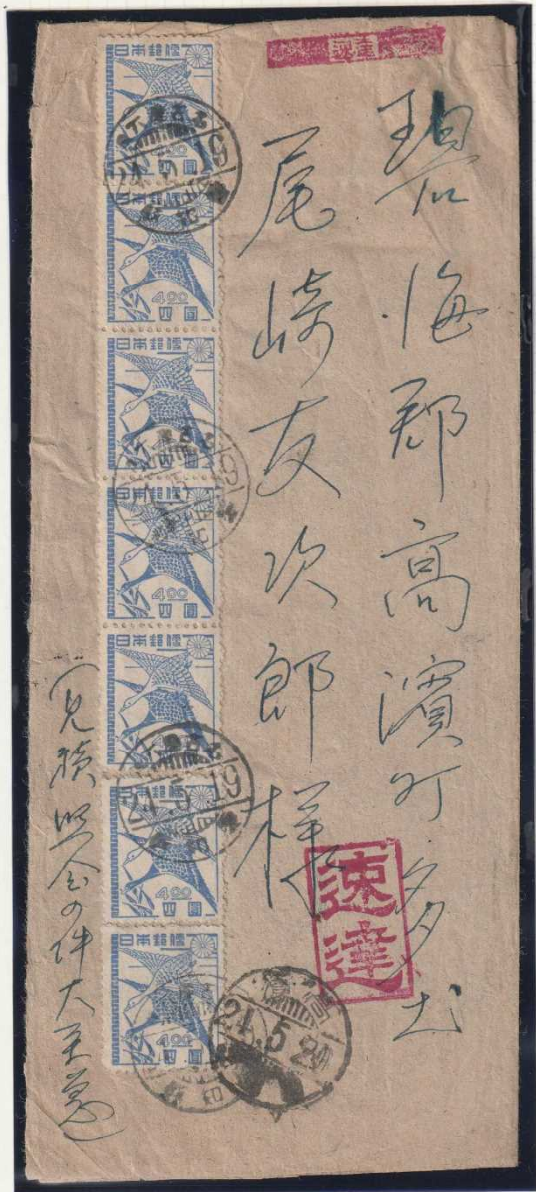 碧海郡高濱町
尾崎友次郎様
速達
日本郵便
4.00
四圓
日本郵便
4.00
四圓
日本郵便
4.00
四圓
日本郵便
4.00
四圓
日本郵便
4.00
四圓
日本郵便
4.00
四圓
日本郵便
4.00
四圓
24.5.19
24.5.19
高濱
24.5.20
(見積照会の件大至急)